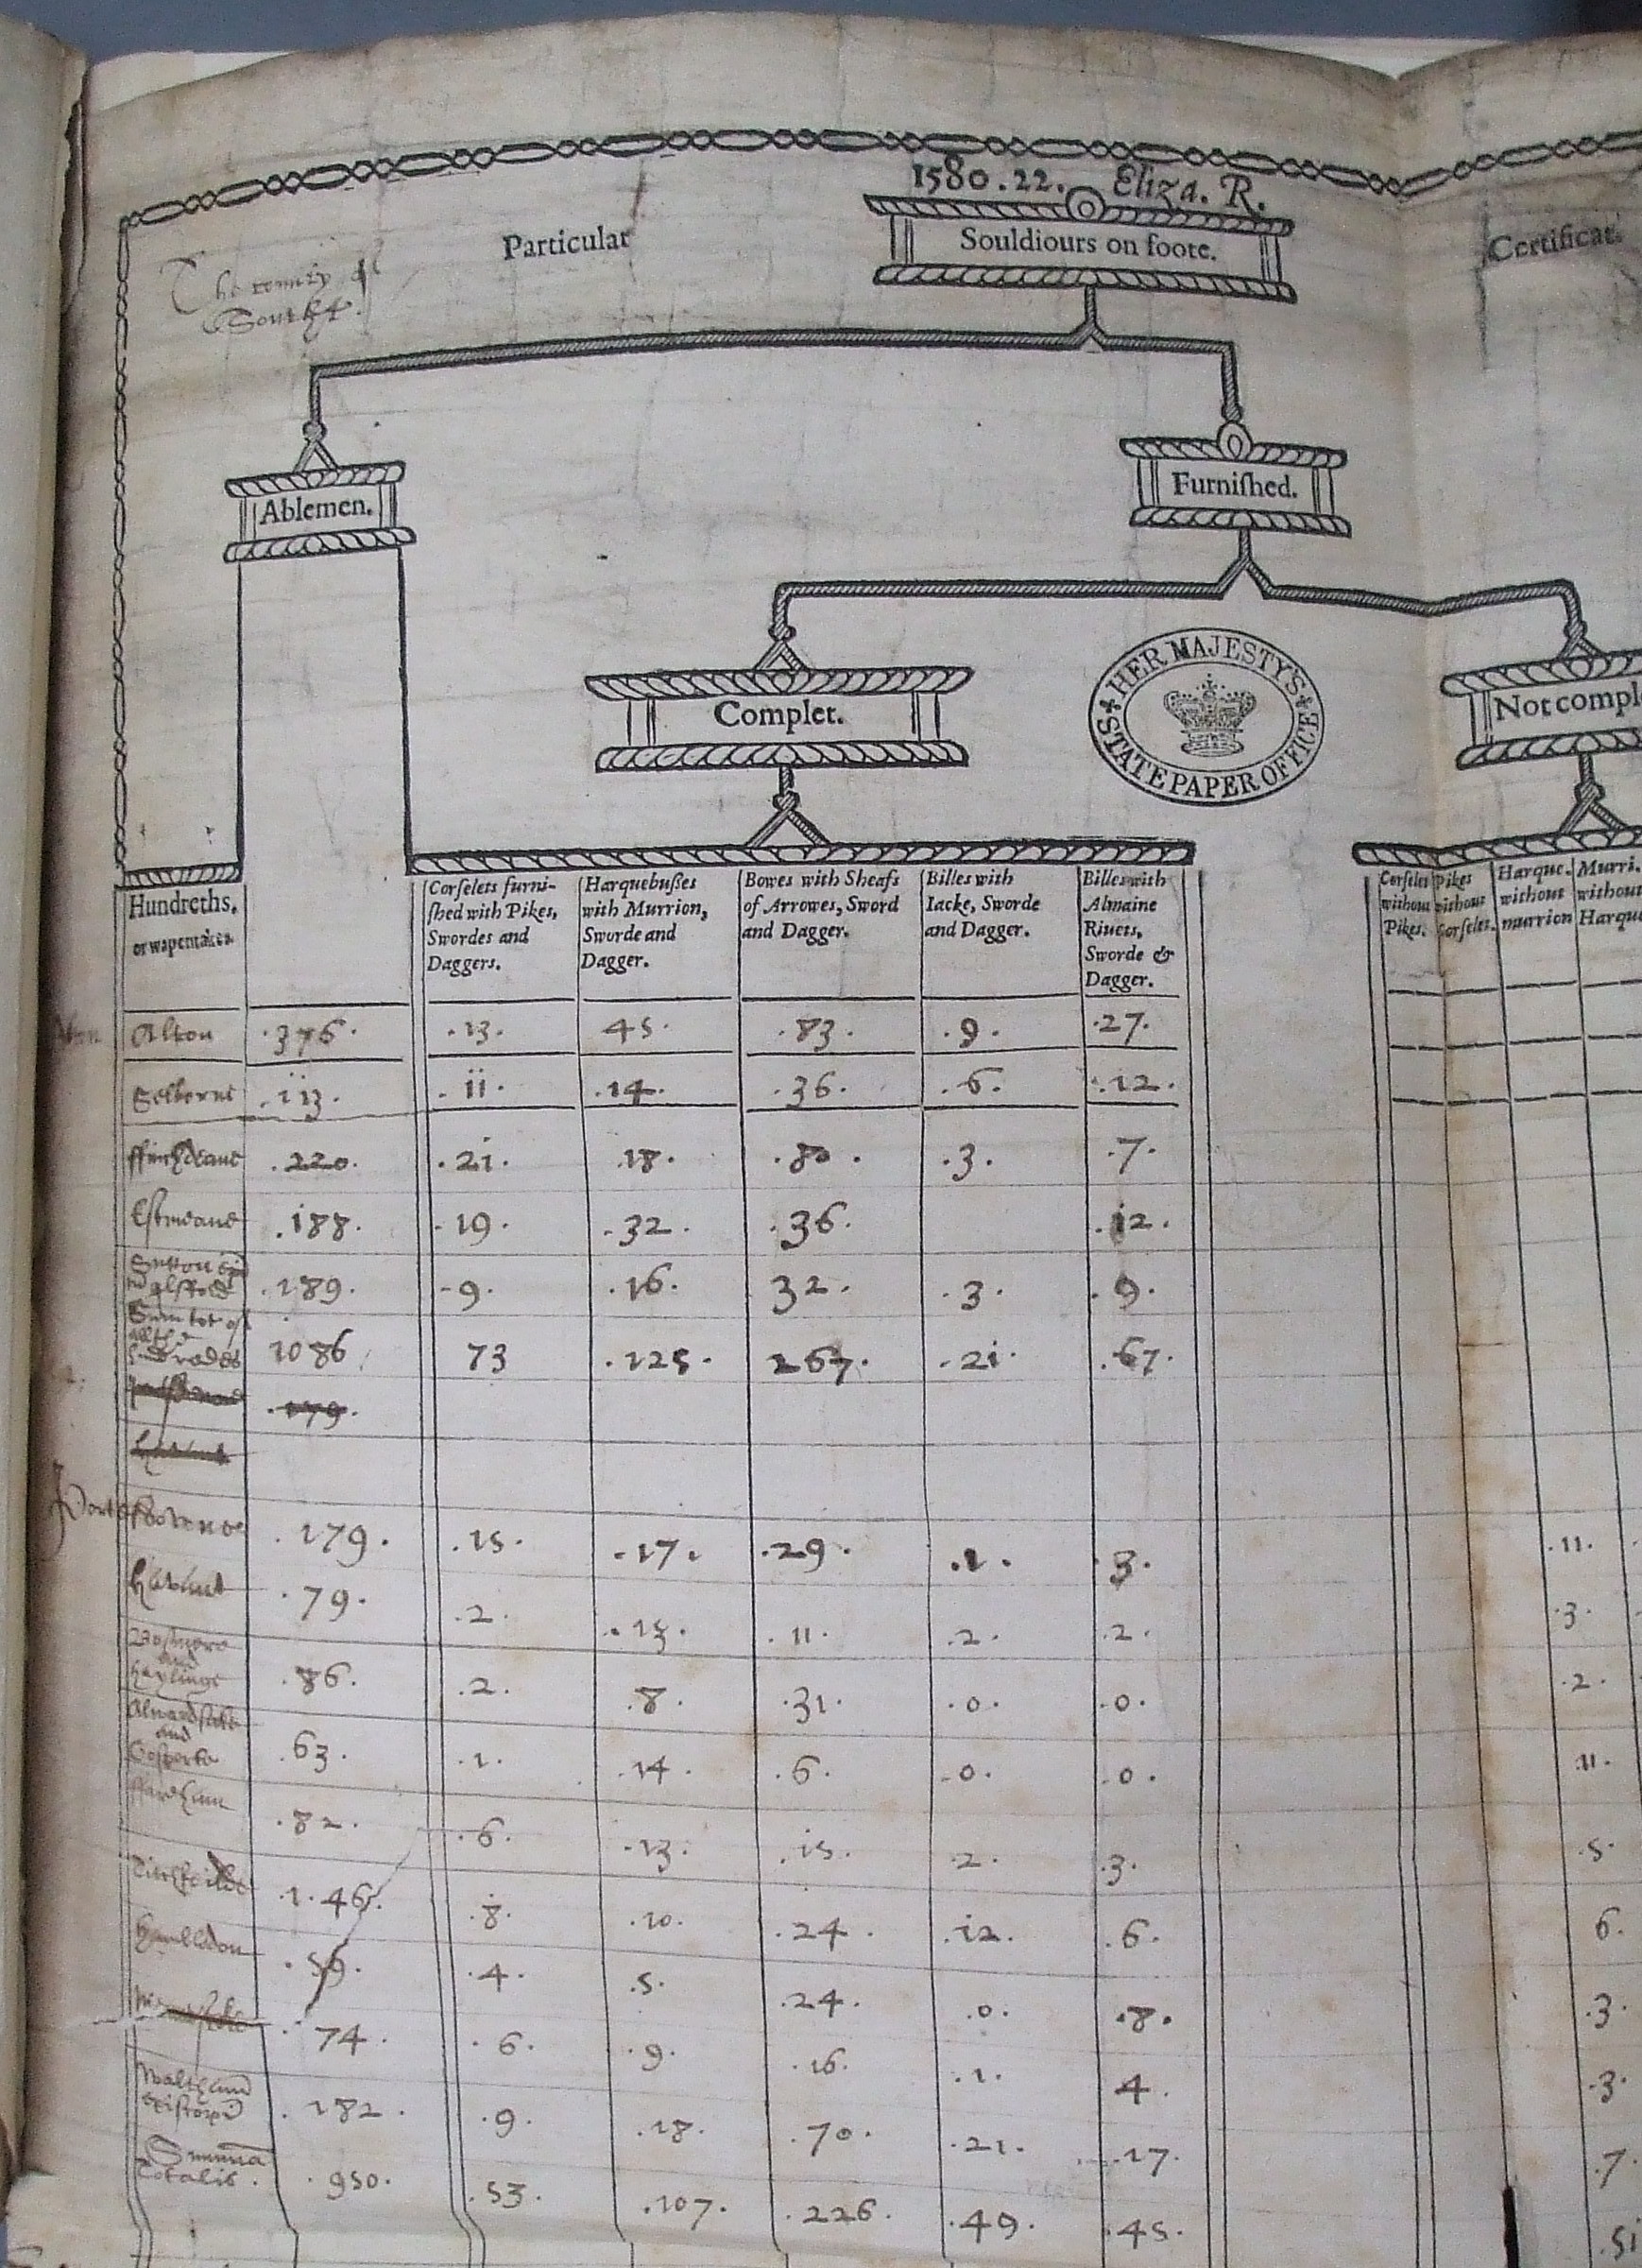 1580.22. Eliza. R.
Particular
Souldiours on foote.
Certificat.
The county of
Southt.
Ablemen.
Furniſhed.
HER MAJESTY'S
STATE PAPER OFFICE
Complet.
Not comple
Hundreths.
or wapentakes.
Corſelets furni-
ſhed with Pikes,
Swordes and
Daggers.
Harquebuſses
with Murrion,
Sworde and
Dagger.
Bowes with Sheafs
of Arrowes, Sword
and Dagger.
Billes with
Iacke, Sworde
and Dagger.
Billes with
Almaine
Riuets,
Sworde &
Dagger.
Corſelets
without
Pikes.
Pikes
without
Corſelets.
Harque.
without
murrion
Murri.
without
Harque
Alton .376. .13. 45. .83. .9. .27.
Selborne .113. .11. .14. .36. .6. .12.
ffinchdeane .220. .21. .18. .80. .3. .7.
Estmeane .188. .19. .32. .36. .12.
Sutton .189. .9. .16. 32. .3. .9.
Sum tot of
all the
hundrodes 1086 73 .125. 267. .21. .67.
.179.
Portesmouthe .179. .15. .17. .29. .1. .3. .11.
Havant .79. .2. .13. .11. .2. .2. .3.
Bosmere
and
Haylinge .86. .2. .8. .31. .0. .0. .2.
Alwardstoke
and
Gosporte .63. .1. .14. .6. .0. .0. .11.
ffarham .82. .6. .13. .15. .2. .3. .5.
Titchfeilde .146. .8. .10. .24. .12. .6. 6.
Hambledon .59. .4. .5. .24. .0. .8. .3.
.74. .6. .9. .16. .1. 4. .3.
Waltham
.182. .9. .18. .70. .21. .17. .7.
Summa
Totalis. .950. .53. .107. .226. .49. .45. .51